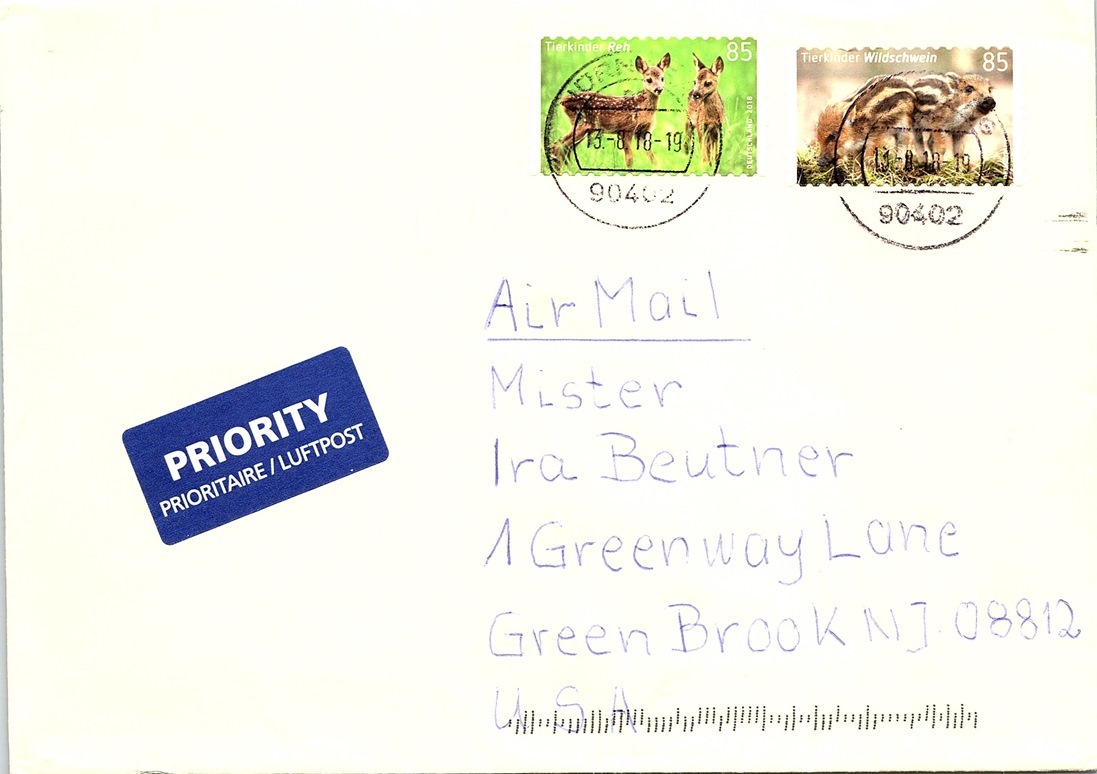 Tierkinder Reh 85
DEUTSCHLAND 2018
13.-8.18-19
90402
Tierkinder Wildschwein 85
13.-8.18-19
90402
Air Mail
Mister
Ira Beutner
1 Greenway Lane
Green Brook NJ. 08812
USA
PRIORITY
PRIORITAIRE / LUFTPOST